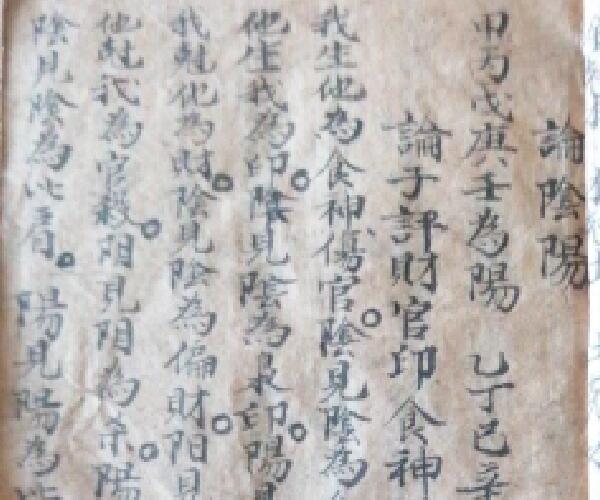 論陰陽
甲丙戊庚壬為陽 乙丁己辛
論子評財官印食神
我生他為食神傷官。陰見陰為
他生我為印。陰見陰為梟印。陽見
我尅他為財。陰見陰為偏財。阳見
他尅我為官殺。阳見阳為杀。陽
陰見陰為比肩。陽見陽為比